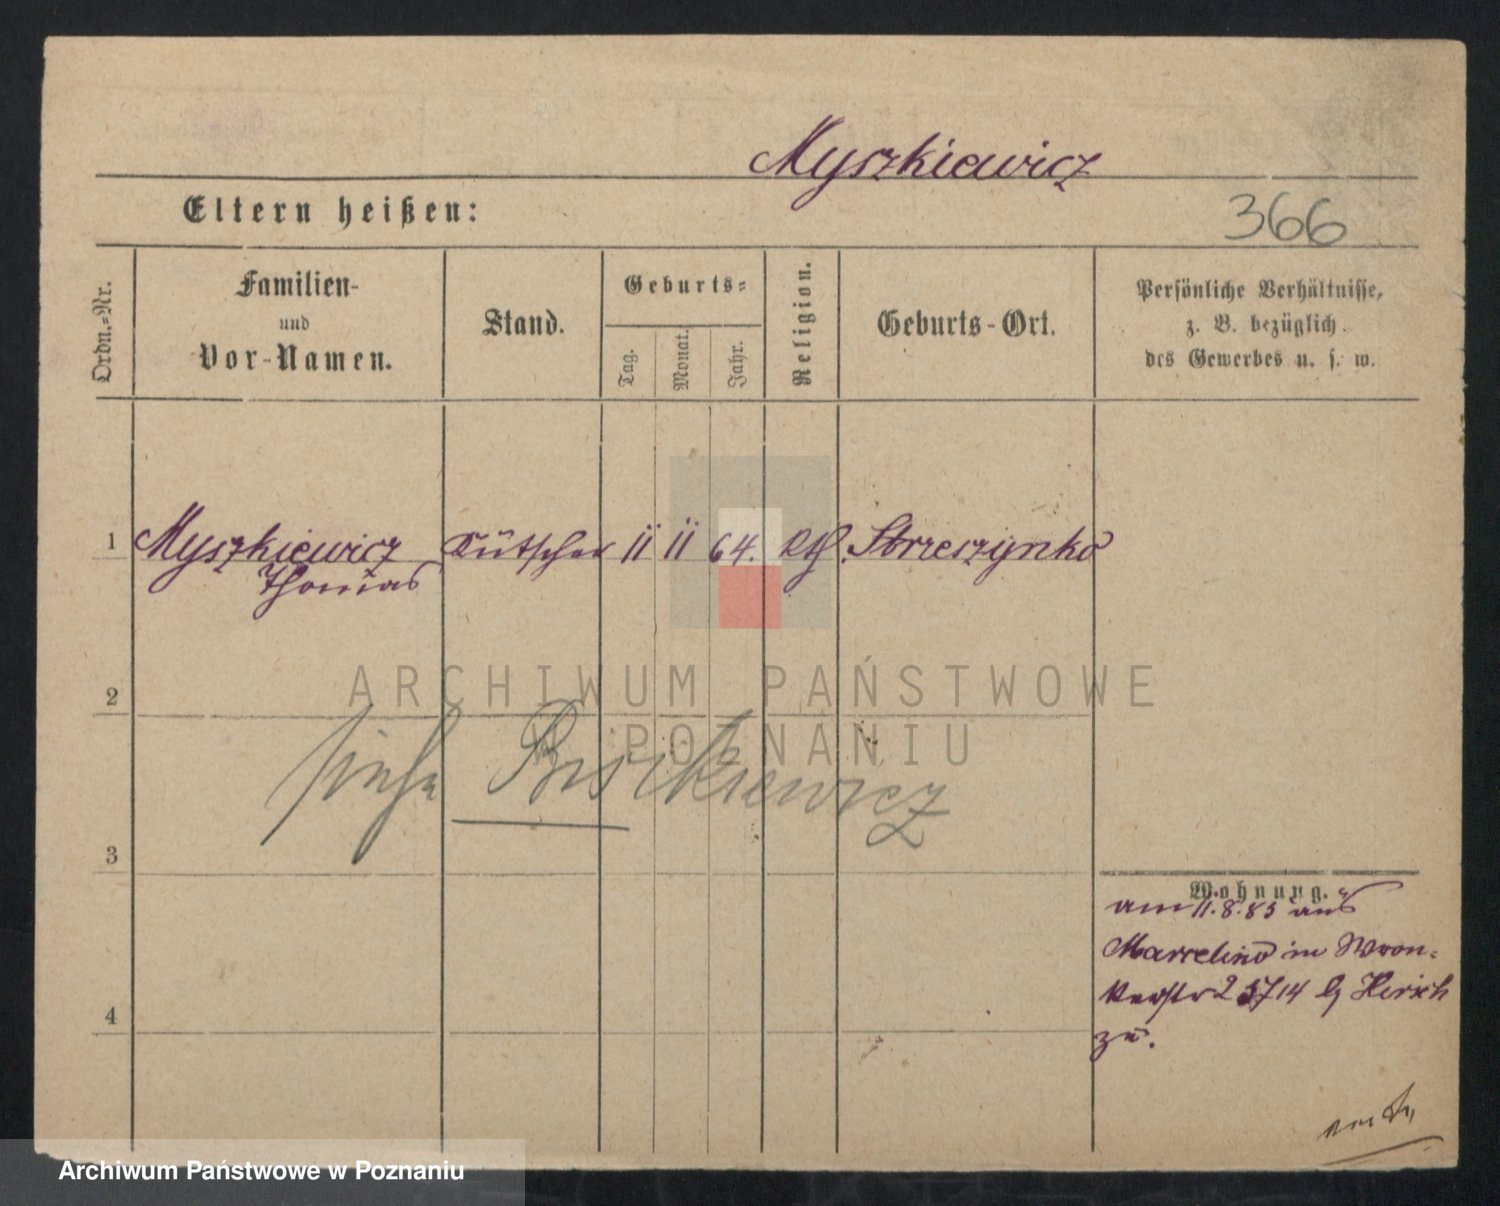 Myszkiewicz
Eltern heißen:
366
Ordn.-Nr.
Familien-
und
Vor-Namen.
Stand.
Geburts-
Tag.
Monat.
Jahr.
Religion.
Geburts-Ort.
Persönliche Verhältnisse,
z. B. bezüglich
des Gewerbes u. s. w.
1 Myszkiewicz Kutscher 11 11 64. Kth. Strzeszynko
Thomas
2
siehe
3
Wohnung.
am 11.8.85 aus
Marcelino in Wron-
kerstr 2 14 Hirsch
zu.
4
ARCHIWUM PAŃSTWOWE
W POZNANIU
Archiwum Państwowe w Poznaniu